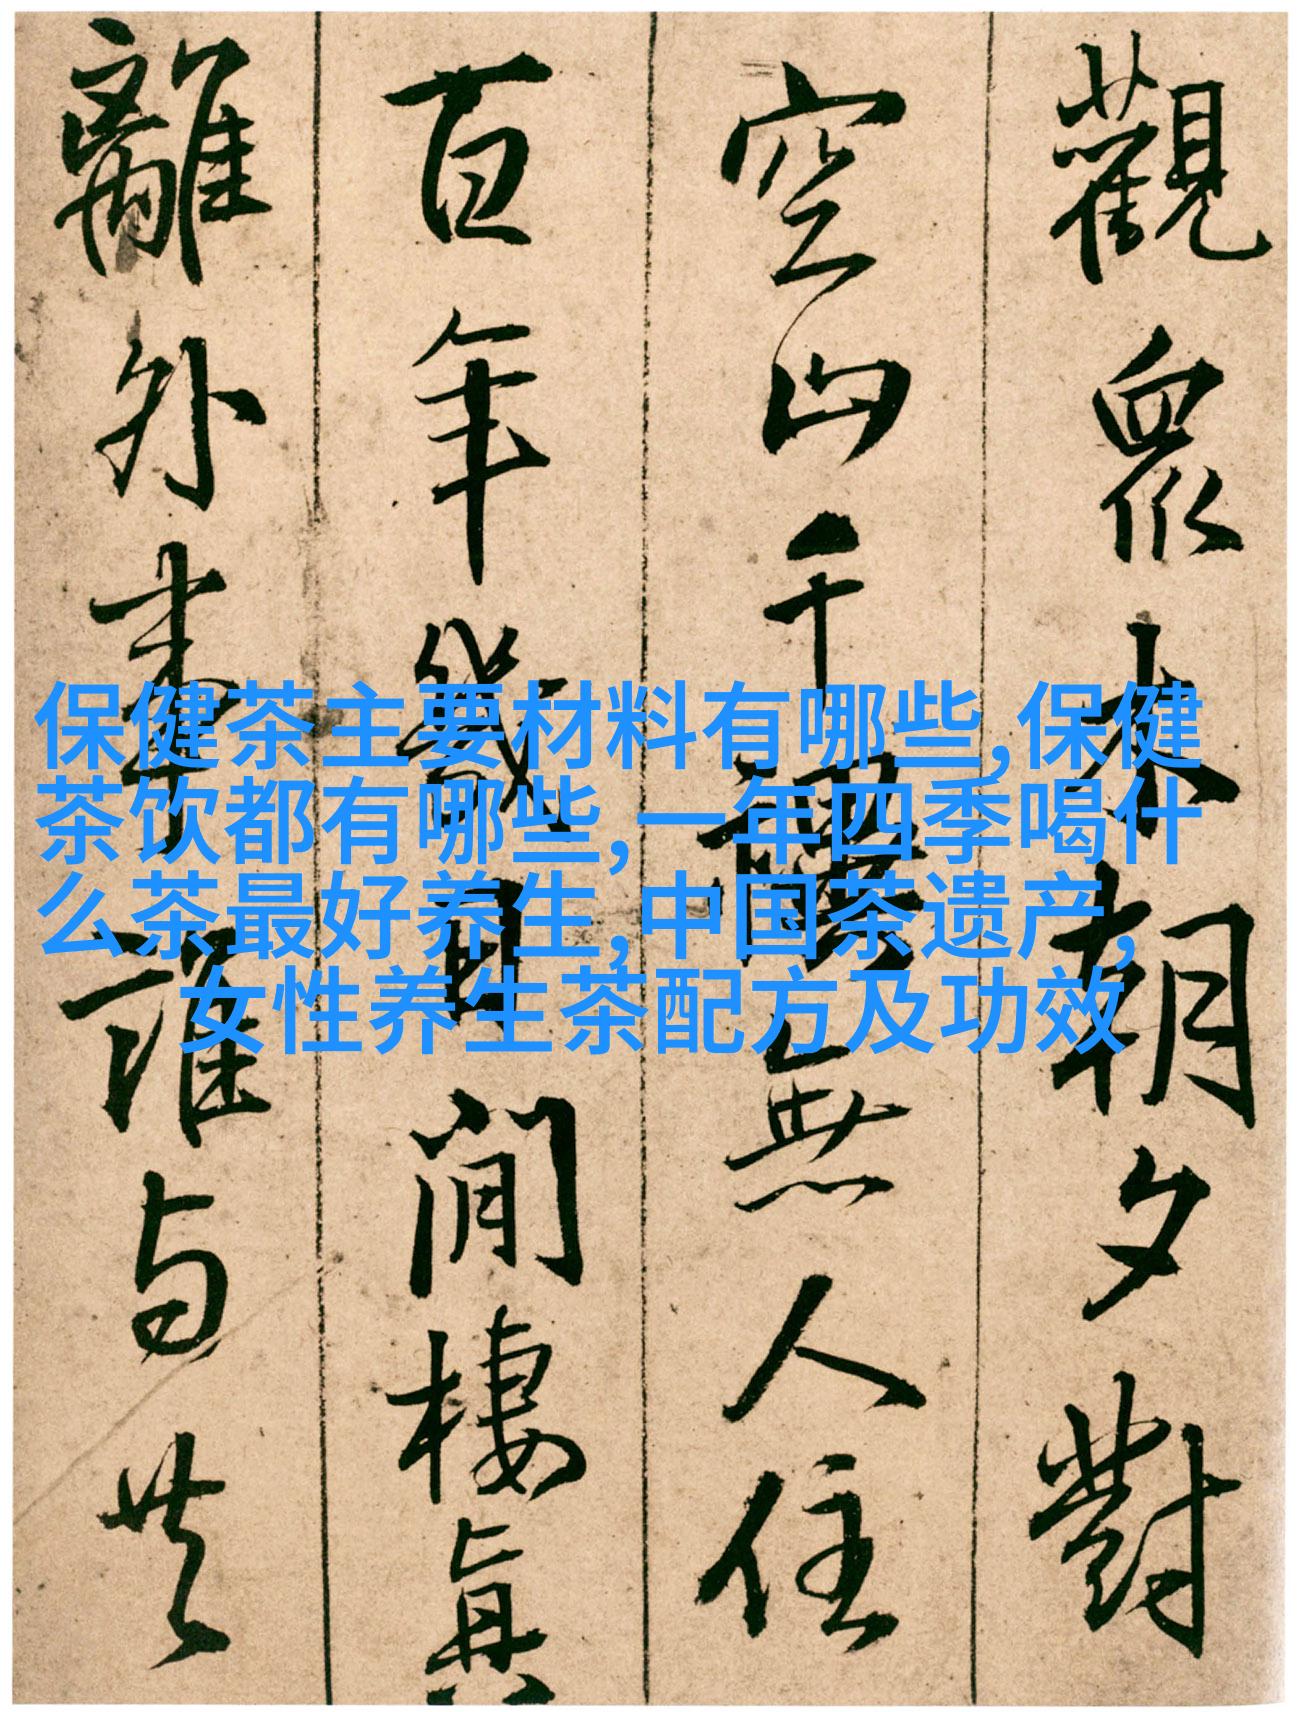 觀衆木朝夕對
空山千禩無人住
百年幾日閒棲真
離外事誰与共
保健茶主要材料有哪些,保健
茶饮都有哪些,一年四季喝什
么茶最好养生,中国茶遗产,
女性养生茶配方及功效